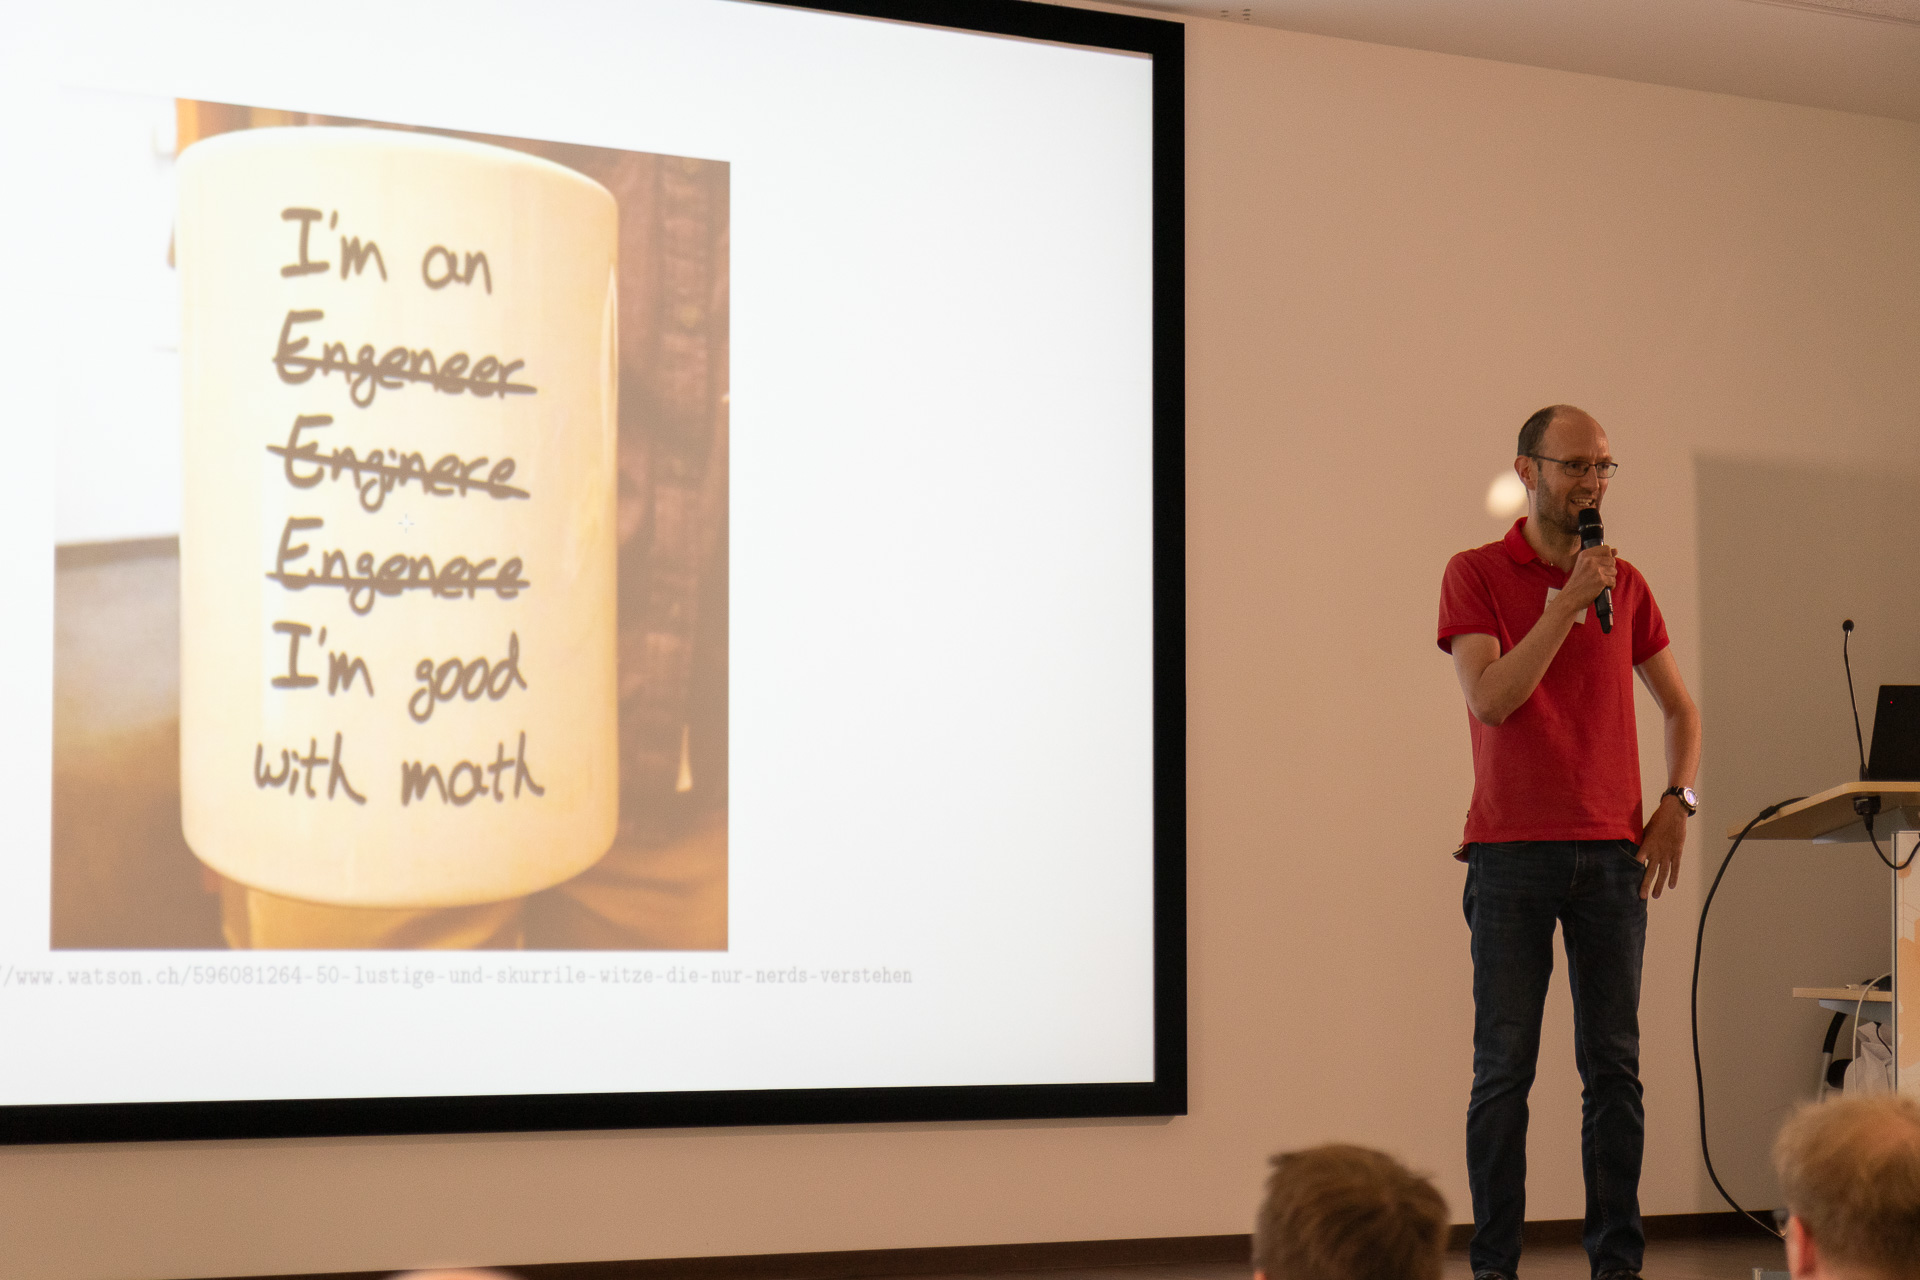 I'm an
Engeneer
Enginere
Engenere
I'm good
with math
/www.watson.ch/596081264-50-lustige-und-skurrile-witze-die-nur-nerds-verstehen